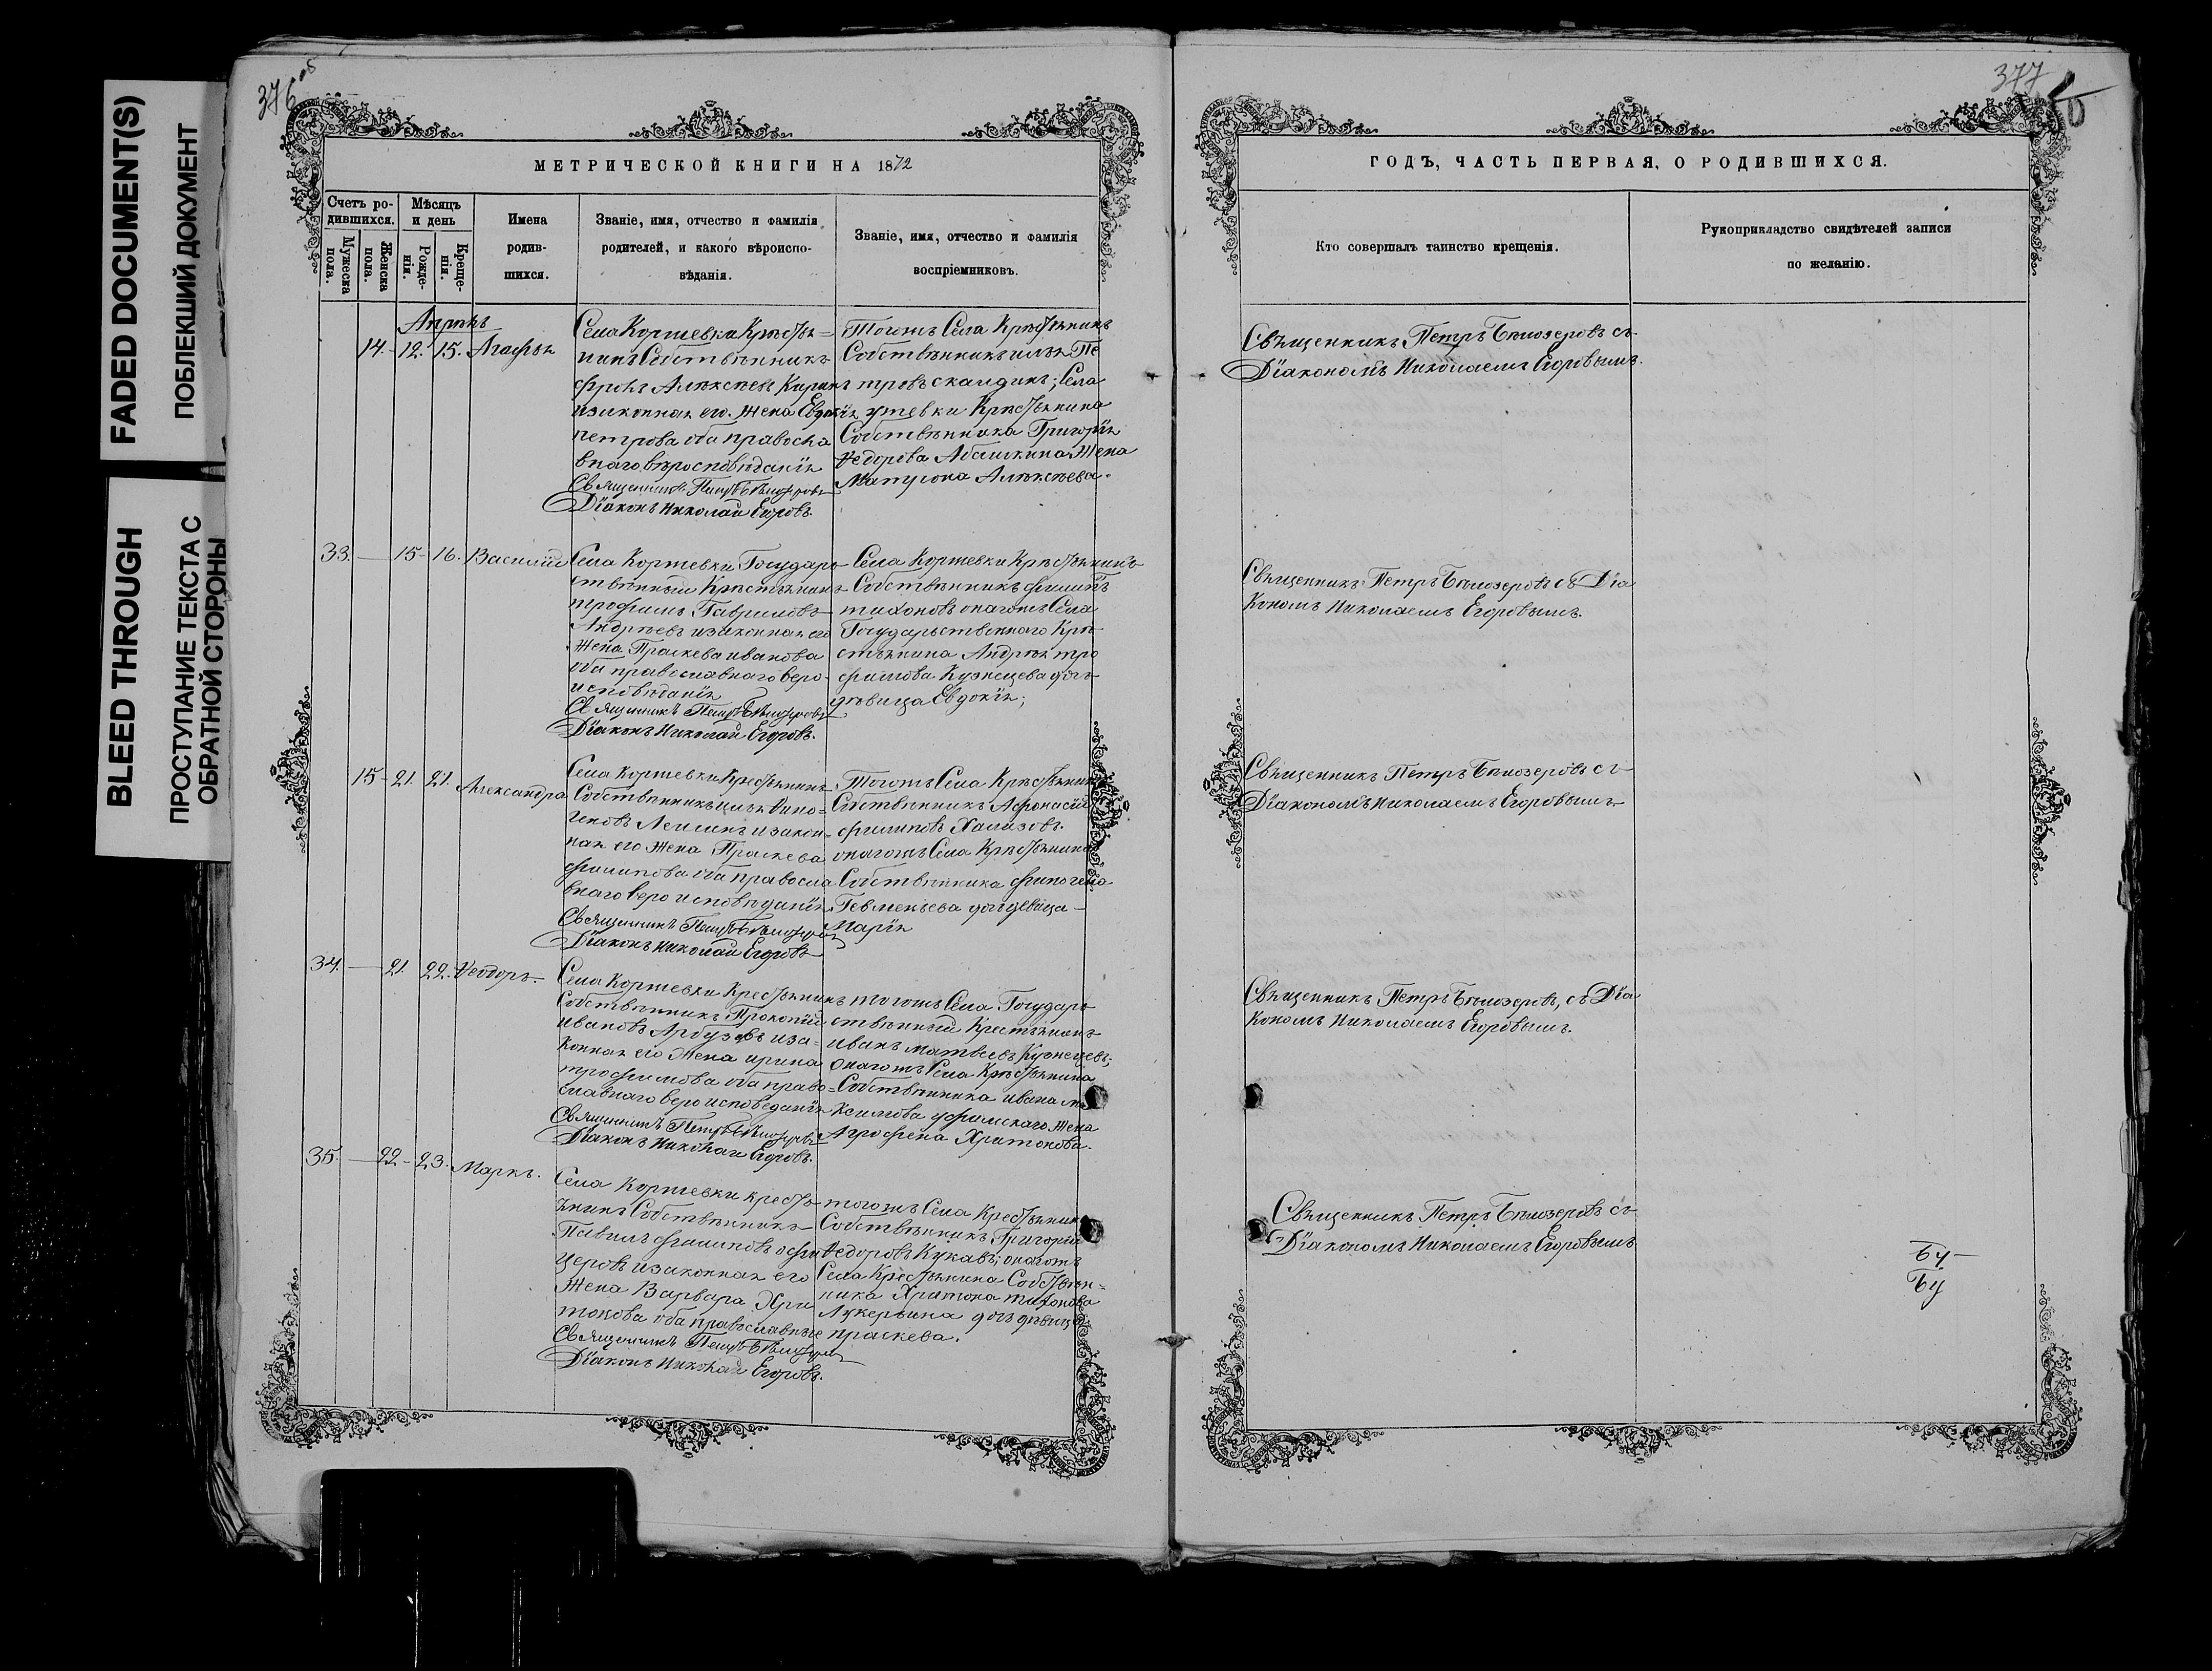 FADED DOCUMENT(S)
ПОБЛЕКШИЙ ДОКУМЕНТ
BLEED THROUGH
ПРОСТУПАНИЕ ТЕКСТА С
ОБРАТНОЙ СТОРОНЫ
376 об
МЕТРИЧЕСКОЙ КНИГИ НА 1872
Счетъ ро-
дившихся.
Мужеска
пола.
Женска
пола.
Мѣсяцъ
и день
Рожде-
нія.
Креще-
нія.
Имена
родив-
шихся.
Званіе, имя, отчество и фамилія
родителей, и какого вѣроиспо-
вѣданія.
Званіе, имя, отчество и фамилія
воспріемниковъ.
Апрѣль
14. 12. 15. Агафья
Села Коржевки Крѣстья=
нинъ Собствѣнникъ
Алѣксѣевъ
изаконная его Жена Евдокія
петрова оба правосла
внаго вѣросповѣданія
Священникъ Петръ Бѣлозеровъ
Діаконъ Николай Егоровъ.
Тогожъ Села Крѣстьянинъ
Собствѣнникъ илья Пе
тровъ Села
утевки Крѣстьянина
Собствѣнника Григорія
Ѳедорова Абашкина Жена
Матрона Алѣксѣева.
33. — 15- 16. Василій
Села Коржевки Государ
ствѣнный Крѣстьянинъ
трофимъ Гавриловъ
Андрѣевъ изаконная его
Жена Праскева иванова
оба православнаго веро
исповѣданія
Священникъ Петръ Бѣлозеровъ
Діаконъ Николай Егоровъ.
Села Коржевки Крѣстьянинъ
Собствѣнникъ филипъ
тихоновъ онагожъ Села
Государственнаго Крѣ
стьянина Андрѣя тро
фимова Кузнецова дочь
дѣвица Евдокія;
15- 21. 21. Александра
Села Коржевки Крестьянинъ
Собствѣнникъ илья Фино=
геновъ изакон=
ная его Жена Праскева
филипова оба правосла
внаго веро исповѣданія
Священникъ Петръ Бѣлозеровъ
Діаконъ Николай Егоровъ
Тогожъ Села Крѣстьянинъ
Собствѣнникъ Афонасій
филиповъ Хализовъ.
онагожъ Села Крѣстьянина
Собствѣнника финогена
дочь девица
Марія
34. — 21. 22. Ѳеодоръ.
Села Коржевки Крестьянинъ
Собствѣнникъ Прокопій
ивановъ Арбузовъ иза=
конная его Жена ирина
трофимова оба право=
славнаго веро исповеданія
Священникъ Петръ Бѣлозеровъ
Діаконъ Николай Егоровъ.
тогожъ Села Государ
ствѣнный Крестьянинъ
иванъ матвеевъ Кузнецовъ;
онагожъ Села Крѣстьянина
Собствѣнника ивана ма
ксимова уфимскаго Жена
Агрофена Харитонова.
35. — 22- 23. Маркъ.
Села Коржевки кресть
янинъ Собствѣнникъ
Павилъ филиповъ офи
церовъ изаконная его
Жена Варвара Хри
тонова оба православные
Священникъ Петръ Бѣлозеровъ
Діаконъ Николай Егоровъ.
тогожъ Села Крестьянинъ
Собствѣнникъ Григорій
Ѳедоровъ Кукавъ; онагожъ
Села Крестьянина Собствѣн=
ника Хритона тихонова
Лукерьина дочь дѣвица
праскева.
377
ГОДЪ, ЧАСТЬ ПЕРВАЯ, О РОДИВШИХСЯ.
Кто совершалъ таинство крещенія.
Рукоприкладство свидѣтелей записи
по желанію.
Священникъ Петръ Бѣлозеровъ съ
Діакономъ Николаемъ Егоровымъ.
Священникъ Петръ Бѣлозеровъ съ Діа
кономъ Николаемъ Егоровымъ.
Священникъ Петръ Бѣлозеровъ съ
Діакономъ Николаемъ Егоровымъ
Священникъ Петръ Бѣлозеровъ, съ Діа
кономъ Николаемъ Егоровымъ.
Священникъ Петръ Бѣлозеровъ съ
Діакономъ Николаемъ Егоровымъ